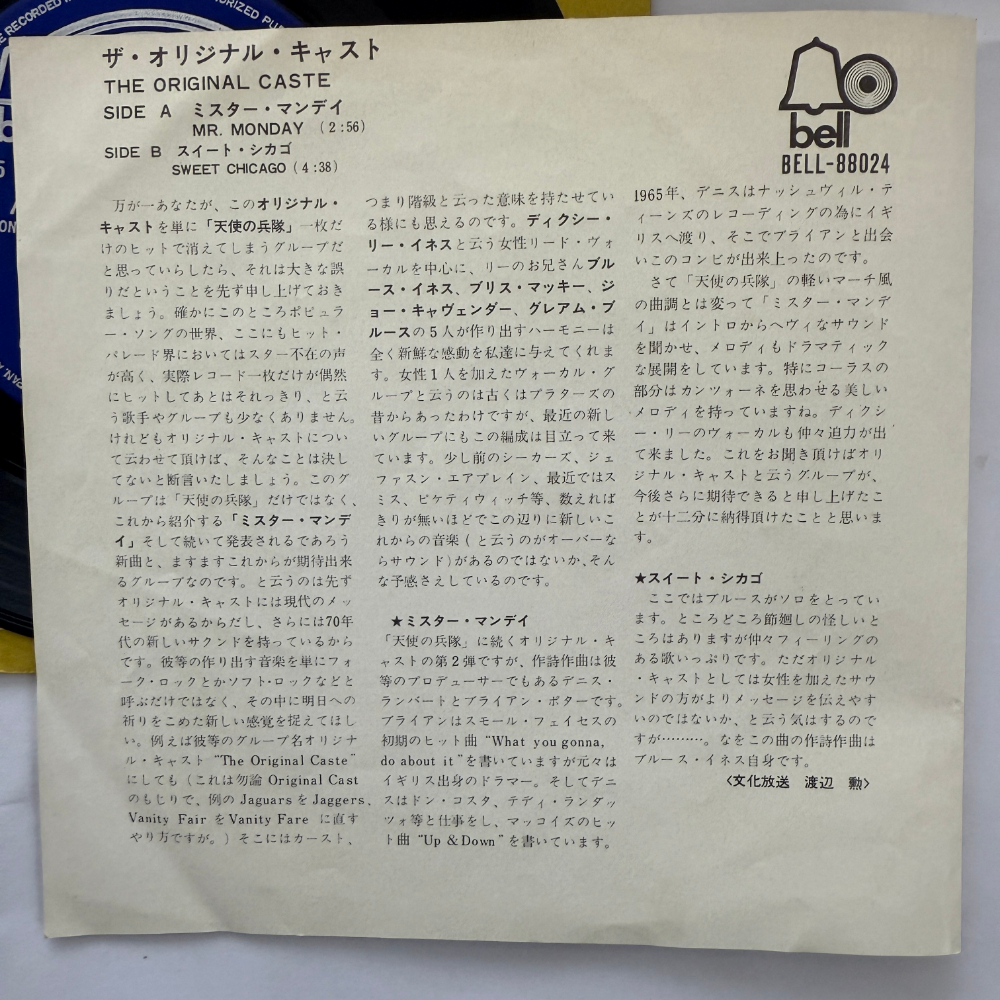 E RECORDED
ORIZED PU
ザ・オリジナル・キャスト
THE ORIGINAL CASTE
SIDE A ミスター・マンデイ
MR. MONDAY (2:56)
SIDE B スイート・シカゴ
SWEET CHICAGO (4:38)
bell
BELL-88024
万が一あなたが、このオリジナル・
キャストを単に「天使の兵隊」一枚だ
けのヒットで消えてしまうグループだ
と思っていらしたら、それは大きな誤
りだということを先ず申し上げておき
ましょう。確かにこのところポピュラ
ー・ソングの世界、ここにもヒット・
パレード界においてはスター不在の声
が高く、実際レコード一枚だけが偶然
にヒットしてあとはそれっきり、と云
う歌手やグループも少なくありません。
けれどもオリジナル・キャストについ
て云わせて頂けば、そんなことは決し
てないと断言いたしましょう。このグ
ループは「天使の兵隊」だけではなく、
これから紹介する「ミスター・マンデ
イ」そして続いて発表されるであろう
新曲と、ますますこれからが期待出来
るグループなのです。と云うのは先ず
オリジナル・キャストには現代のメッ
セージがあるからだし、さらには70年
代の新しいサウンドを持っているから
です。彼等の作り出す音楽を単にフォ
ーク・ロックとかソフト・ロックなどと
呼ぶだけではなく、その中に明日への
祈りをこめた新しい感覚を捉えてほし
い。例えば彼等のグループ名オリジナ
ル・キャスト “The Original Caste”
にしても(これは勿論 Original Cast
のもじりで、例の Jaguars を Jaggers、
Vanity Fair を Vanity Fare に直す
やり方ですが。)そこにはカースト、
つまり階級と云った意味を持たせてい
る様にも思えるのです。ディクシー・
リー・イネスと云う女性リード・ヴォ
ーカルを中心に、リーのお兄さんブル
ース・イネス、ブリス・マッキー、ジ
ョー・キャヴェンダー、グレアム・ブ
ルースの5人が作り出すハーモニーは
全く新鮮な感動を私達に与えてくれま
す。女性1人を加えたヴォーカル・グ
ループと云うのは古くはプラターズの
昔からあったわけですが、最近の新し
いグループにもこの編成は目立って来
ています。少し前のシーカーズ、ジェ
ファスン・エアプレイン、最近ではス
ミス、ピケティウィッチ等、数えれば
きりが無いほどでこの辺りに新しいこ
れからの音楽(と云うのがオーバーな
らサウンド)があるのではないか、そん
な予感さえしているのです。
★ミスター・マンデイ
「天使の兵隊」に続くオリジナル・キ
ャストの第2弾ですが、作詩作曲は彼
等のプロデューサーでもあるデニス・
ランバートとブライアン・ポターです。
ブライアンはスモール・フェイセスの
初期のヒット曲 “What you gonna,
do about it” を書いていますが元々は
イギリス出身のドラマー。そしてデニ
スはドン・コスタ、テディ・ランダッ
ツォ等と仕事をし、マッコイズのヒッ
ト曲 “Up & Down” を書いています。
1965年、デニスはナッシュヴィル・テ
ィーンズのレコーディングの為にイギ
リスへ渡り、そこでブライアンと出会
いこのコンビが出来上ったのです。
さて「天使の兵隊」の軽いマーチ風
の曲調とは変って「ミスター・マンデ
イ」はイントロからヘヴィなサウンド
を聞かせ、メロディもドラマティック
な展開をしています。特にコーラスの
部分はカンツォーネを思わせる美しい
メロディを持っていますね。ディクシ
ー・リーのヴォーカルも仲々迫力が出
て来ました。これをお聞き頂けばオリ
ジナル・キャストと云うグループが、
今後さらに期待できると申し上げたこ
とが十二分に納得頂けたことと思いま
す。
★スイート・シカゴ
ここではブルースがソロをとってい
ます。ところどころ節廻しの怪しいと
ころはありますが仲々フィーリングの
ある歌いっぷりです。ただオリジナル
・キャストとしては女性を加えたサウ
ンドの方がよりメッセージを伝えやす
いのではないか、と云う気はするので
すが………。なをこの曲の作詩作曲は
ブルース・イネス自身です。
〈文化放送 渡辺 勲〉